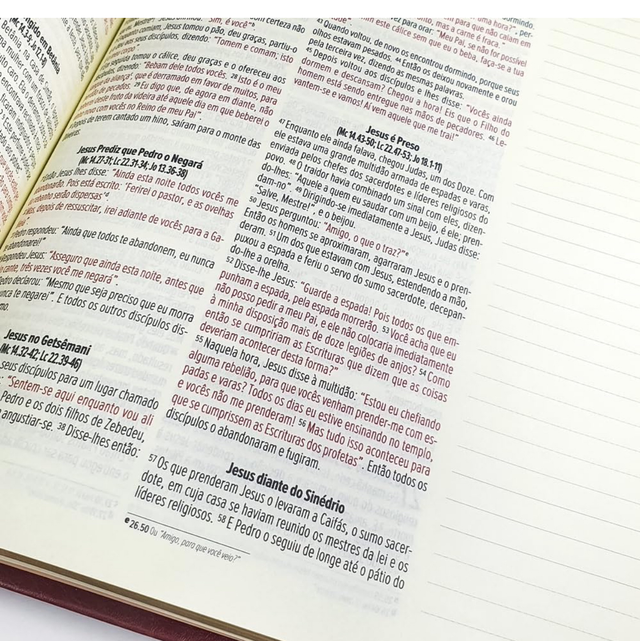 tomou o pão, deu graças, partiu-o
aos seus discípulos, dizendo: "Tomem e comam; isto
seguida tomou o cálice, deu graças e o ofereceu aos
dizendo: "Bebam dele todos vocês. 28 Isto é o meu
que é derramado em favor de muitos, para
29 Eu digo que, de agora em diante, não
deste fruto da videira até aquele dia em que beberei o
novo com vocês no Reino de meu Pai".
de terem cantado um hino, saíram para o monte das
Jesus Prediz que Pedro o Negará
(Mc 14.27-31; Lc 22.31-34; Jo 13.36-38)
Jesus lhes disse: "Ainda esta noite todos vocês me
Pois está escrito: "'Ferirei o pastor, e as ovelhas
serão dispersas'
depois de ressuscitar, irei adiante de vocês para a Ga-
respondeu: "Ainda que todos te abandonem, eu nunca
abandonarei!"
Jesus: "Asseguro que ainda esta noite, antes que
cante, três vezes você me negará".
Pedro declarou: "Mesmo que seja preciso que eu morra
nunca te negarei". E todos os outros discípulos dis-
Jesus no Getsêmani
(Mc 14.32-42; Lc 22.39-46)
seus discípulos para um lugar chamado
"Sentem-se aqui enquanto vou ali
Pedro e os dois filhos de Zebedeu,
angustiar-se. 38 Disse-lhes então:
este cálice sem que eu o beba, faça-se a tua
43 Quando voltou, de novo os encontrou dormindo, porque seus
olhos estavam pesados. 44 Então os deixou novamente e orou
pela terceira vez, dizendo as mesmas palavras.
45 Depois voltou aos discípulos e lhes disse: "Vocês ainda
dormem e descansam? Chegou a hora! Eis que o Filho do
homem está sendo entregue nas mãos de pecadores. 46 Le-
vantem-se e vamos! Aí vem aquele que me trai!"
Jesus é Preso
(Mc 14.43-50; Lc 22.47-53; Jo 18.1-11)
47 Enquanto ele ainda falava, chegou Judas, um dos Doze. Com
ele estava uma grande multidão armada de espadas e varas,
enviada pelos chefes dos sacerdotes e líderes religiosos do
povo. 48 O traidor havia combinado um sinal com eles, dizen-
do-lhes: "Aquele a quem eu saudar com um beijo, é ele; pren-
dam-no". 49 Dirigindo-se imediatamente a Jesus, Judas disse:
"Salve, Mestre!", e o beijou.
50 Jesus perguntou: "Amigo, o que o traz?"e
Então os homens se aproximaram, agarraram Jesus e o pren-
deram. 51 Um dos que estavam com Jesus, estendendo a mão,
puxou a espada e feriu o servo do sumo sacerdote, decepan-
do-lhe a orelha.
52 Disse-lhe Jesus: "Guarde a espada! Pois todos os que em-
punham a espada, pela espada morrerão. 53 Você acha que eu
não posso pedir a meu Pai, e ele não colocaria imediatamente
à minha disposição mais de doze legiões de anjos? 54 Como
então se cumpririam as Escrituras que dizem que as coisas
deveriam acontecer desta forma?"
55 Naquela hora, Jesus disse à multidão: "Estou eu chefiando
alguma rebelião, para que vocês venham prender-me com es-
padas e varas? Todos os dias eu estive ensinando no templo,
e vocês não me prenderam! 56 Mas tudo isso aconteceu para
que se cumprissem as Escrituras dos profetas". Então todos os
discípulos o abandonaram e fugiram.
Jesus diante do Sinédrio
57 Os que prenderam Jesus o levaram a Caifás, o sumo sacer-
dote, em cuja casa se haviam reunido os mestres da lei e os
líderes religiosos. 58 E Pedro o seguiu de longe até o pátio do
e 26.50 Ou "Amigo, para que você veio?"